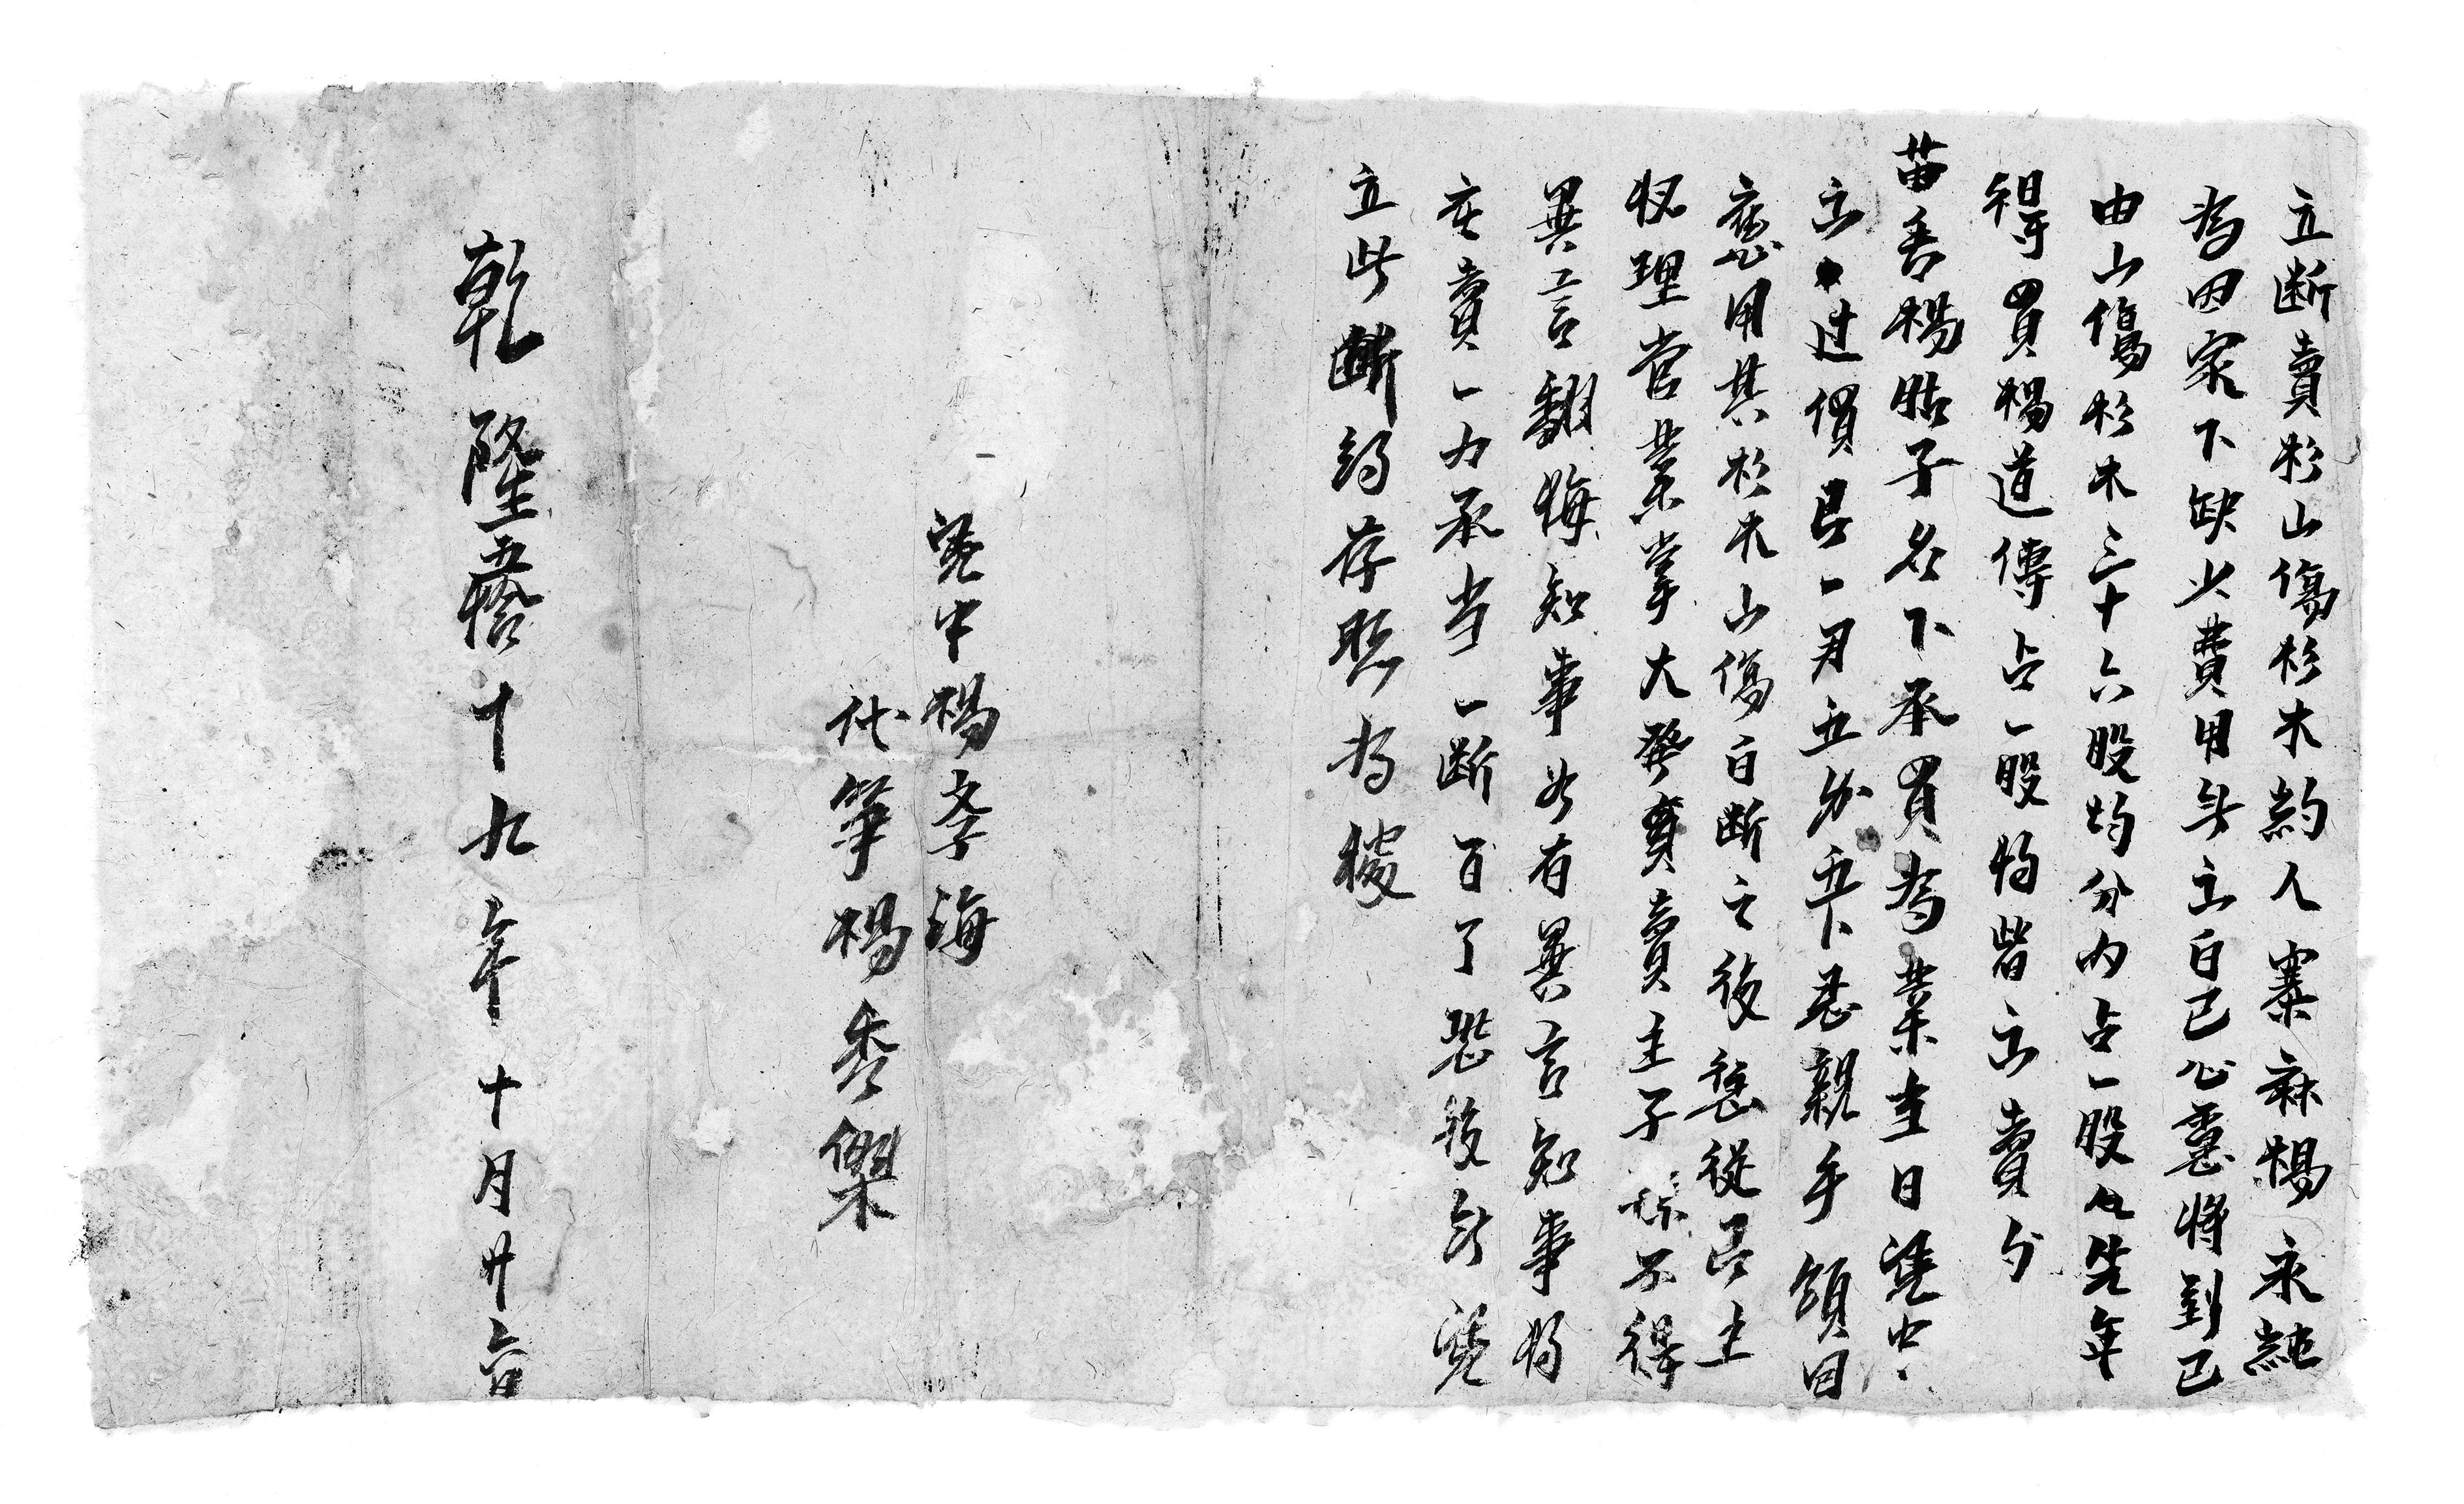 立断賣杉山傷杉木約人寨麻楊永純
為因家下缺少費用無立自己心意將到己
由山傷杉木三十六股均分内占一股又先年
得買楊道傳占一股均皆立賣分
苗吾楊貼子名下承買為業主日凴中
立過價艮一两五分五下悉親手領回
應用其杉木山傷自断之後慿從艮主
权理管業掌大發賣賣主子孫不得
異言翻悔知事如有異言知事将
在賣一力承当一断百了恐後無凴
立此断約存照為據
凴中楊孝海
代筆楊秀傑
乾隆五拾十九年十月廿六日